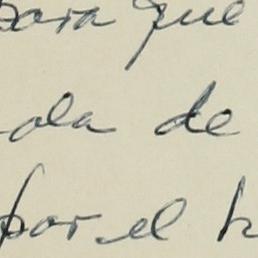 para que
ola de
por el h